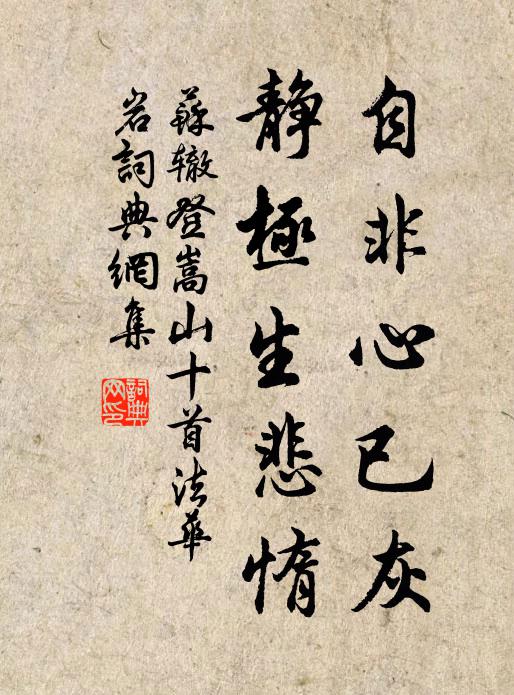 自非心已灰
静極生悲惰
蘇辙登嵩山十首法華
岩詞典網集
詞典
网印